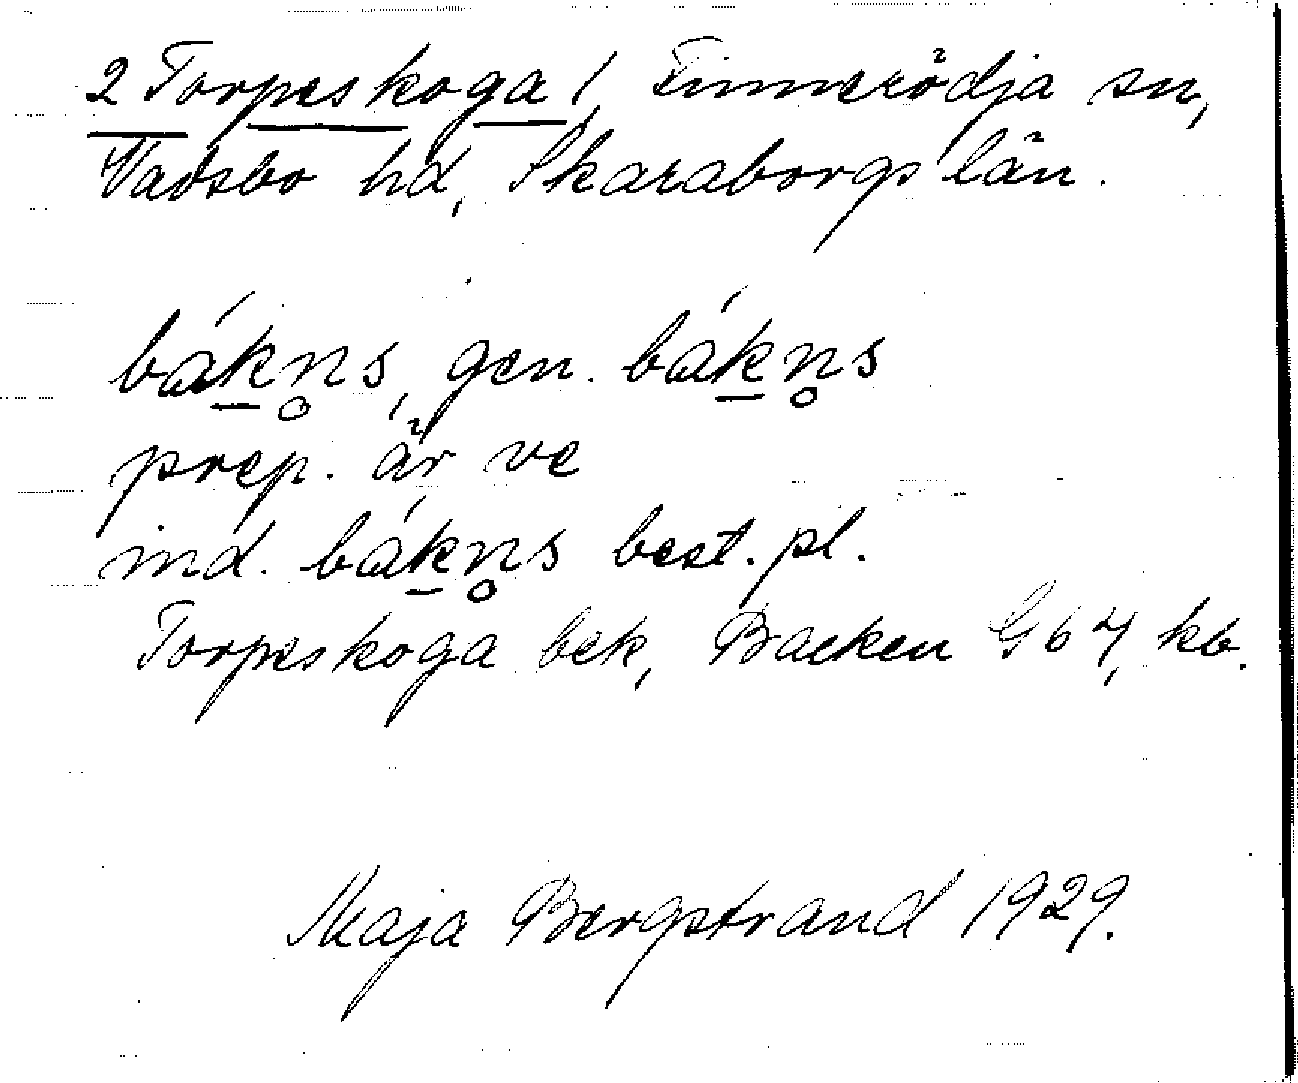 2 Torpeskoga 1, Finnerödja sn,
Vadsbo hd, Skaraborgs län.
bák̲n̥s, gen. bák̲n̥s
prep. är ve
ind. bák̲n̥s best. pl.
Torpeskoga bek, Backen G 67, kb.
Maja Bergstrand 1929.